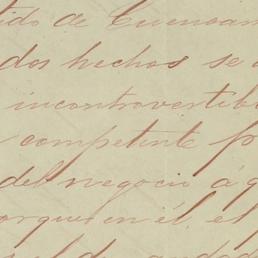 tido de Cuencam
dos hechos se
incontrovertibl
competente p
del negocio á q
orque en él, es